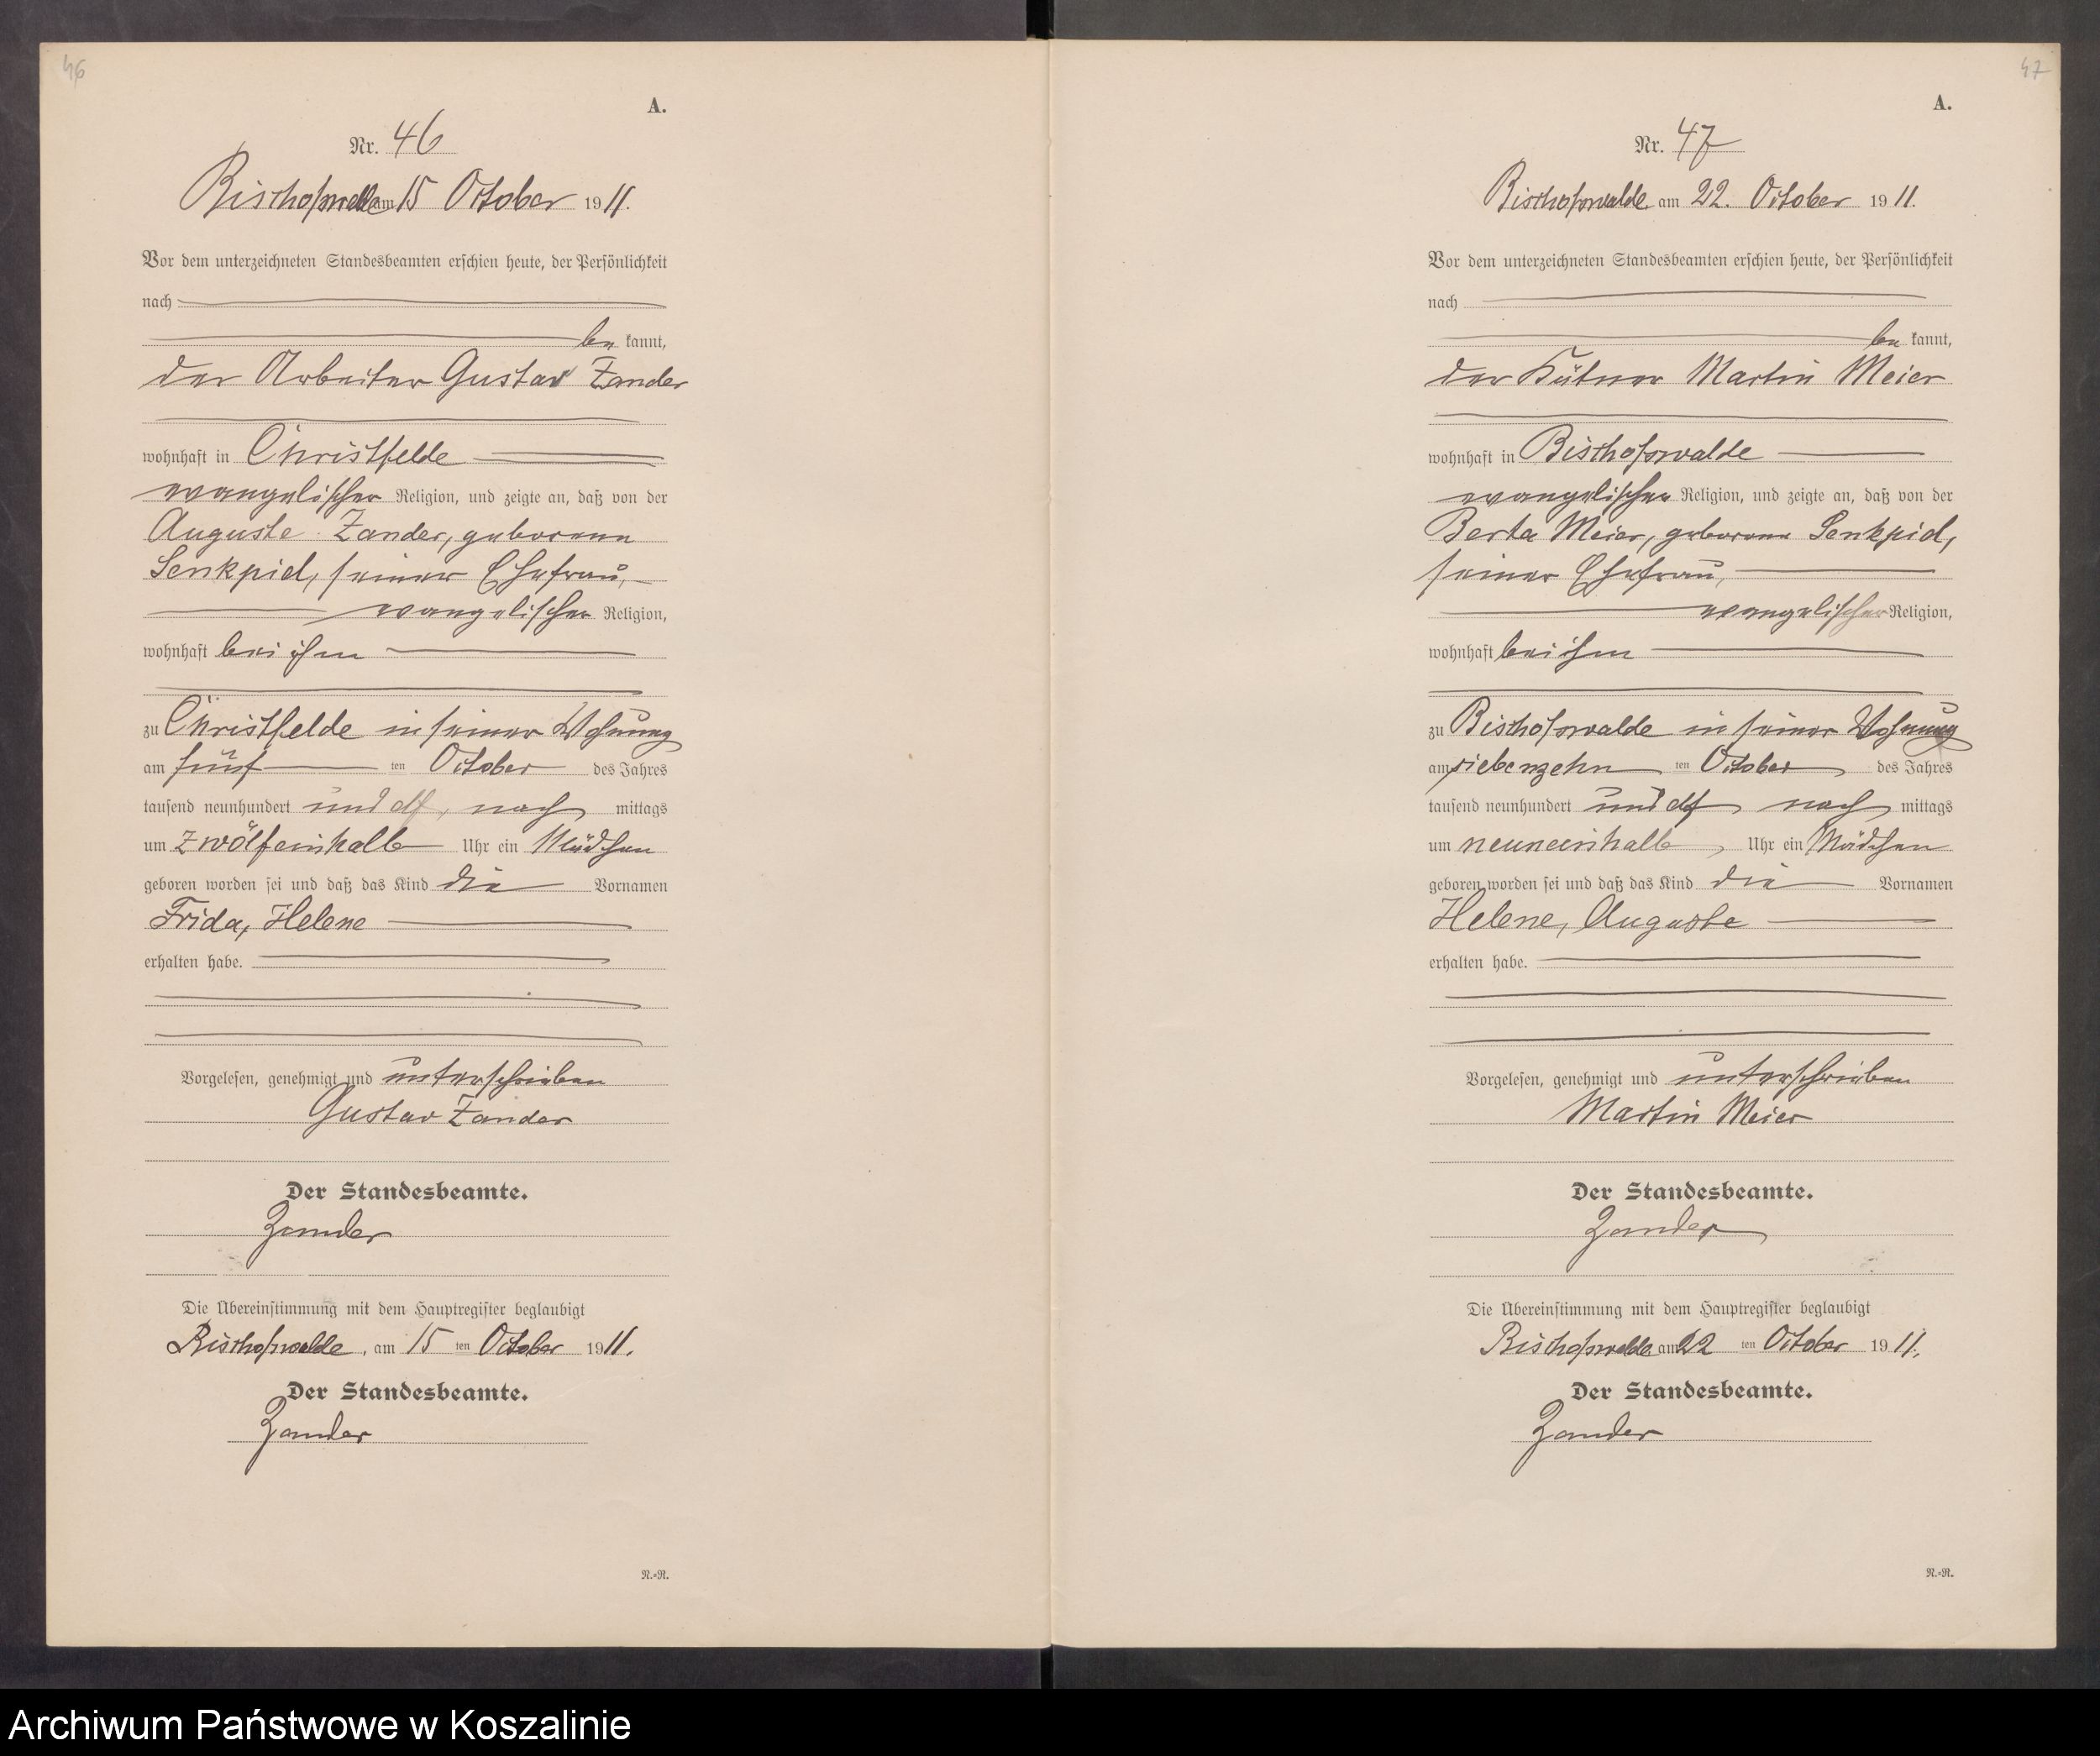 46
A.
Nr. 46
Bischofswalde am 15 October 1911.
Vor dem unterzeichneten Standesbeamten erschien heute, der Persönlichkeit
nach
be kannt,
der Arbeiter Gustav Zander
wohnhaft in Christfelde
evangelischer Religion, und zeigte an, daß von der
Auguste Zander, geborene
Senkpiel, seiner Ehefrau,
evangelischer Religion,
wohnhaft bei ihm
zu Christfelde in seiner Wohnung
am fünf ten October des Jahres
tausend neunhundert und elf, nach mittags
um zwölfeinhalb Uhr ein Mädchen
geboren worden sei und daß das Kind die Vornamen
Frida, Helene
erhalten habe.
Vorgelesen, genehmigt und unterschrieben
Gustav Zander
Der Standesbeamte.
Zander
Die Übereinstimmung mit dem Hauptregister beglaubigt
Bischofswalde, am 15 ten October 1911.
Der Standesbeamte.
Zander
R.=R.
47
A.
Nr. 47
Bischofswalde am 22. October 1911.
Vor dem unterzeichneten Standesbeamten erschien heute, der Persönlichkeit
nach
be kannt,
der Kätner Martin Meier
wohnhaft in Bischofswalde
evangelischer Religion, und zeigte an, daß von der
Berta Meier, geborene Senkpiel,
seiner Ehefrau,
evangelischer Religion,
wohnhaft bei ihm
zu Bischofswalde in seiner Wohnung
am siebenzehn ten October des Jahres
tausend neunhundert und elf, nach mittags
um neuneinhalb Uhr ein Mädchen
geboren worden sei und daß das Kind die Vornamen
Helene, Auguste
erhalten habe.
Vorgelesen, genehmigt und unterschrieben
Martin Meier
Der Standesbeamte.
Zander
Die Übereinstimmung mit dem Hauptregister beglaubigt
Bischofswalde am 22 ten October 1911.
Der Standesbeamte.
Zander
R.=R.
Archiwum Państwowe w Koszalinie